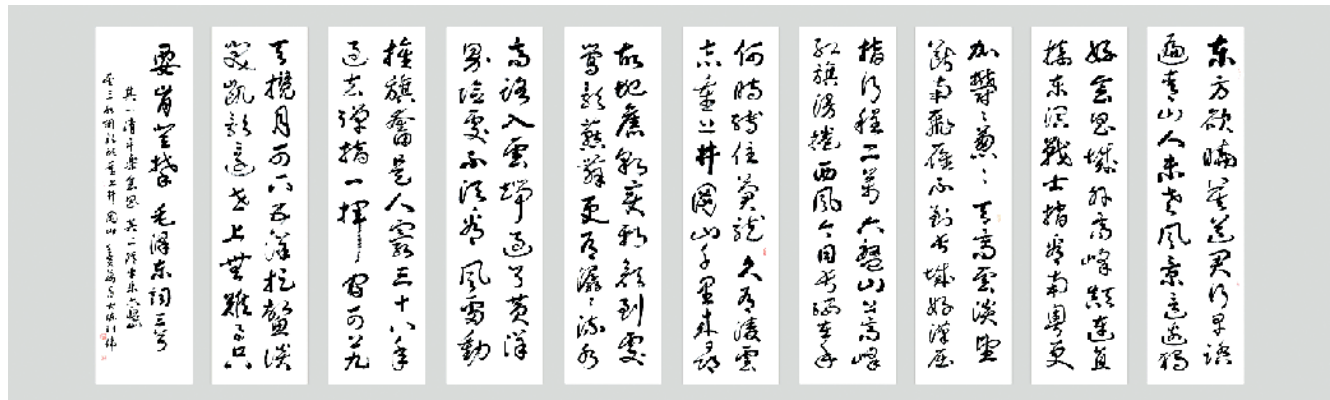 东方欲晓莫道君行早踏
遍青山人未老风景这边独
好会昌城外高峰颠连直
接东溟战士指看南粤更
加郁〻葱〻天高雲淡望
断南飞雁不到长城好汉屈
指行程二万六盘山上高峰
红旗漫卷西风今日长缨在手
何时缚住苍龙久有凌雲
志重上井冈山千里来寻
故地旧貌变新颜到处
莺歌燕舞更有潺〻流水
高路入雲端过了黄洋
界险处不须看风雷动
旌旗奋是人寰三十八年
过去弹指一挥间可上九
天揽月可下五洋捉鳖谈
笑凯歌还世上無难事只
要肯登攀 毛泽东词三首
其一清平乐会昌 其二清平乐六盘山
其三水调歌头重上井冈山